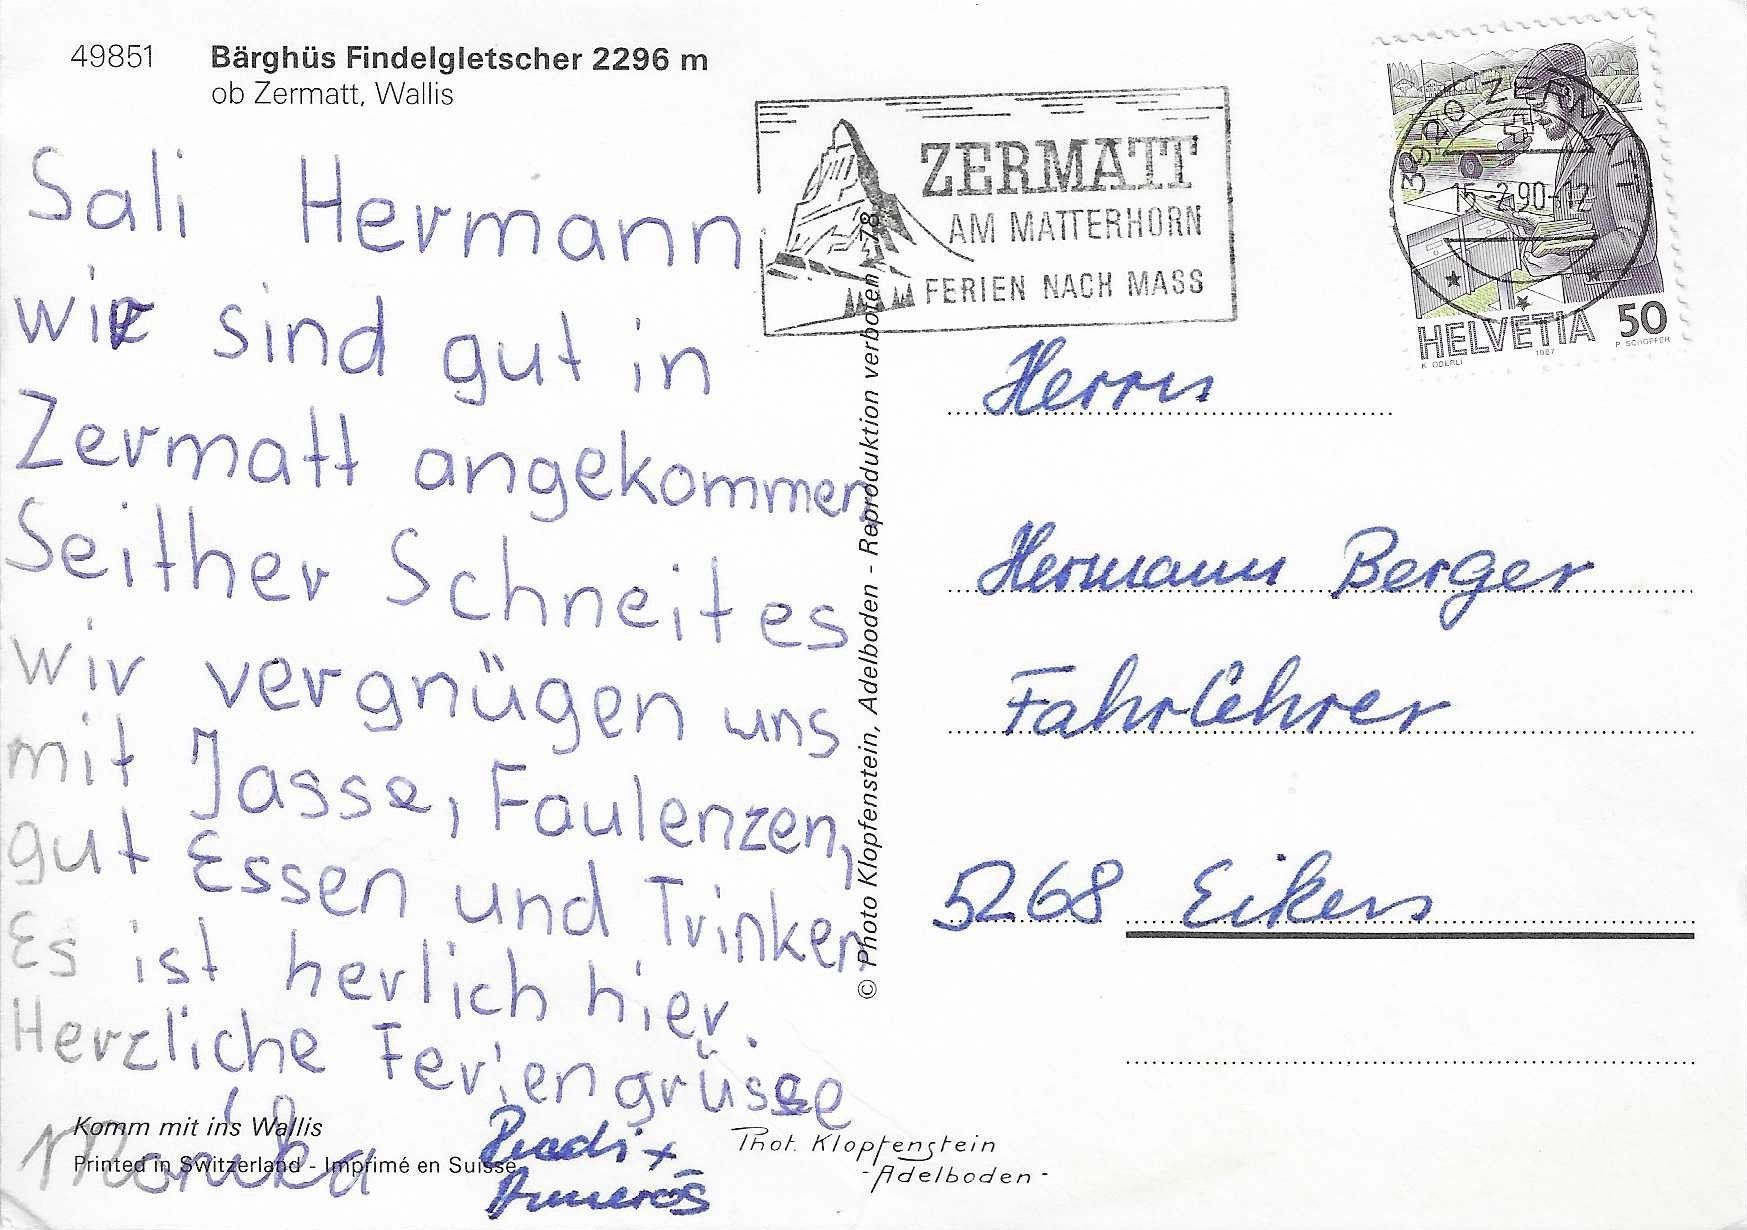 49851 Bärghüs Findelgletscher 2296 m
ob Zermatt, Wallis
Sali Hermann
wir sind gut in
Zermatt angekommen
Seither Schneit es
wir vergnügen uns
mit Jasse, Faulenzen,
gut Essen und Trinken
Es ist herlich hier.
Herzliche Feriengrüsse
Monika
Ruedi +
Annerös
Komm mit ins Wallis
Printed in Switzerland - Imprimé en Suisse
Phot. Klopfenstein
- Adelboden -
© Photo Klopfenstein, Adelboden - Reproduktion verboten - 78
ZERMATT
AM MATTERHORN
FERIEN NACH MASS
3920 ZERMATT
15.-2.90-12
HELVETIA 50
K. OBERLI 1987 P. SCHOPFER
Herrn
Hermann Berger
Fahrlehrer
5268 Eiken